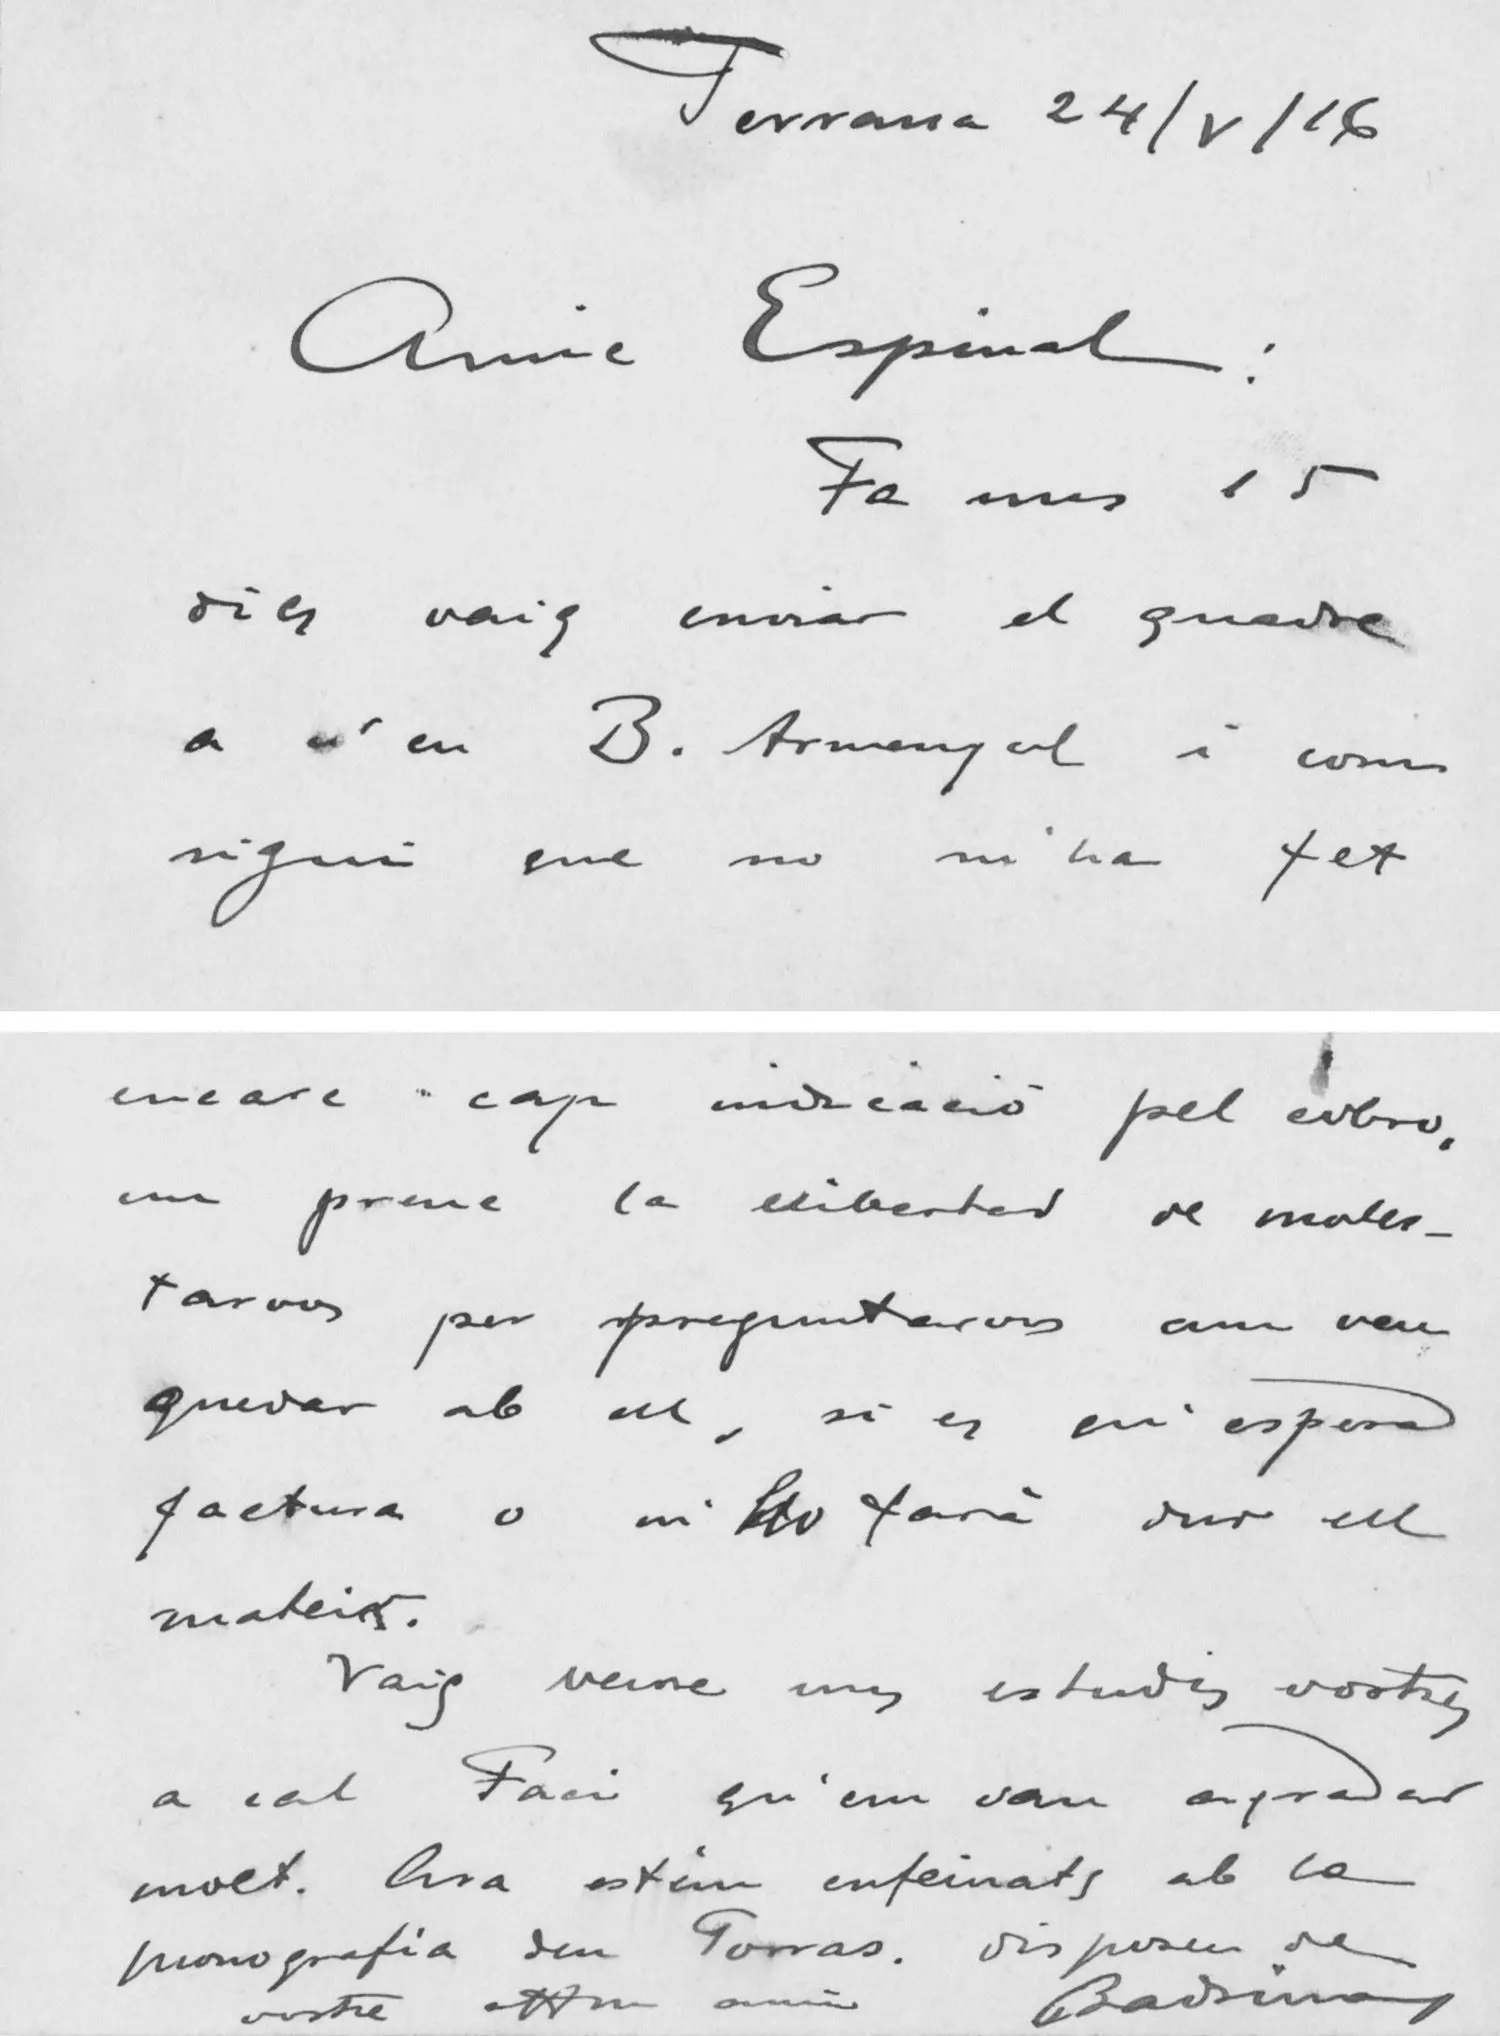 Terrassa 24/V/16
Amic Espinal:
Fa uns 15
dies vaig enviar el quadre
a n'en B. Armengol i com
sigui que no m'ha fet
encare cap indicació pel cobro,
em prenc la llibertad de moles-
tarvos per preguntarvos com vau
quedar ab ell, si es qu'espera
factura o m'ho farà dur ell
mateix.
Vaig veure uns estudis vostres
a cal Faci qu'em van agradar
molt. Ara estem enfeinats ab la
monografia den Torras. Disposeu de
vostre attm amic Badrinas